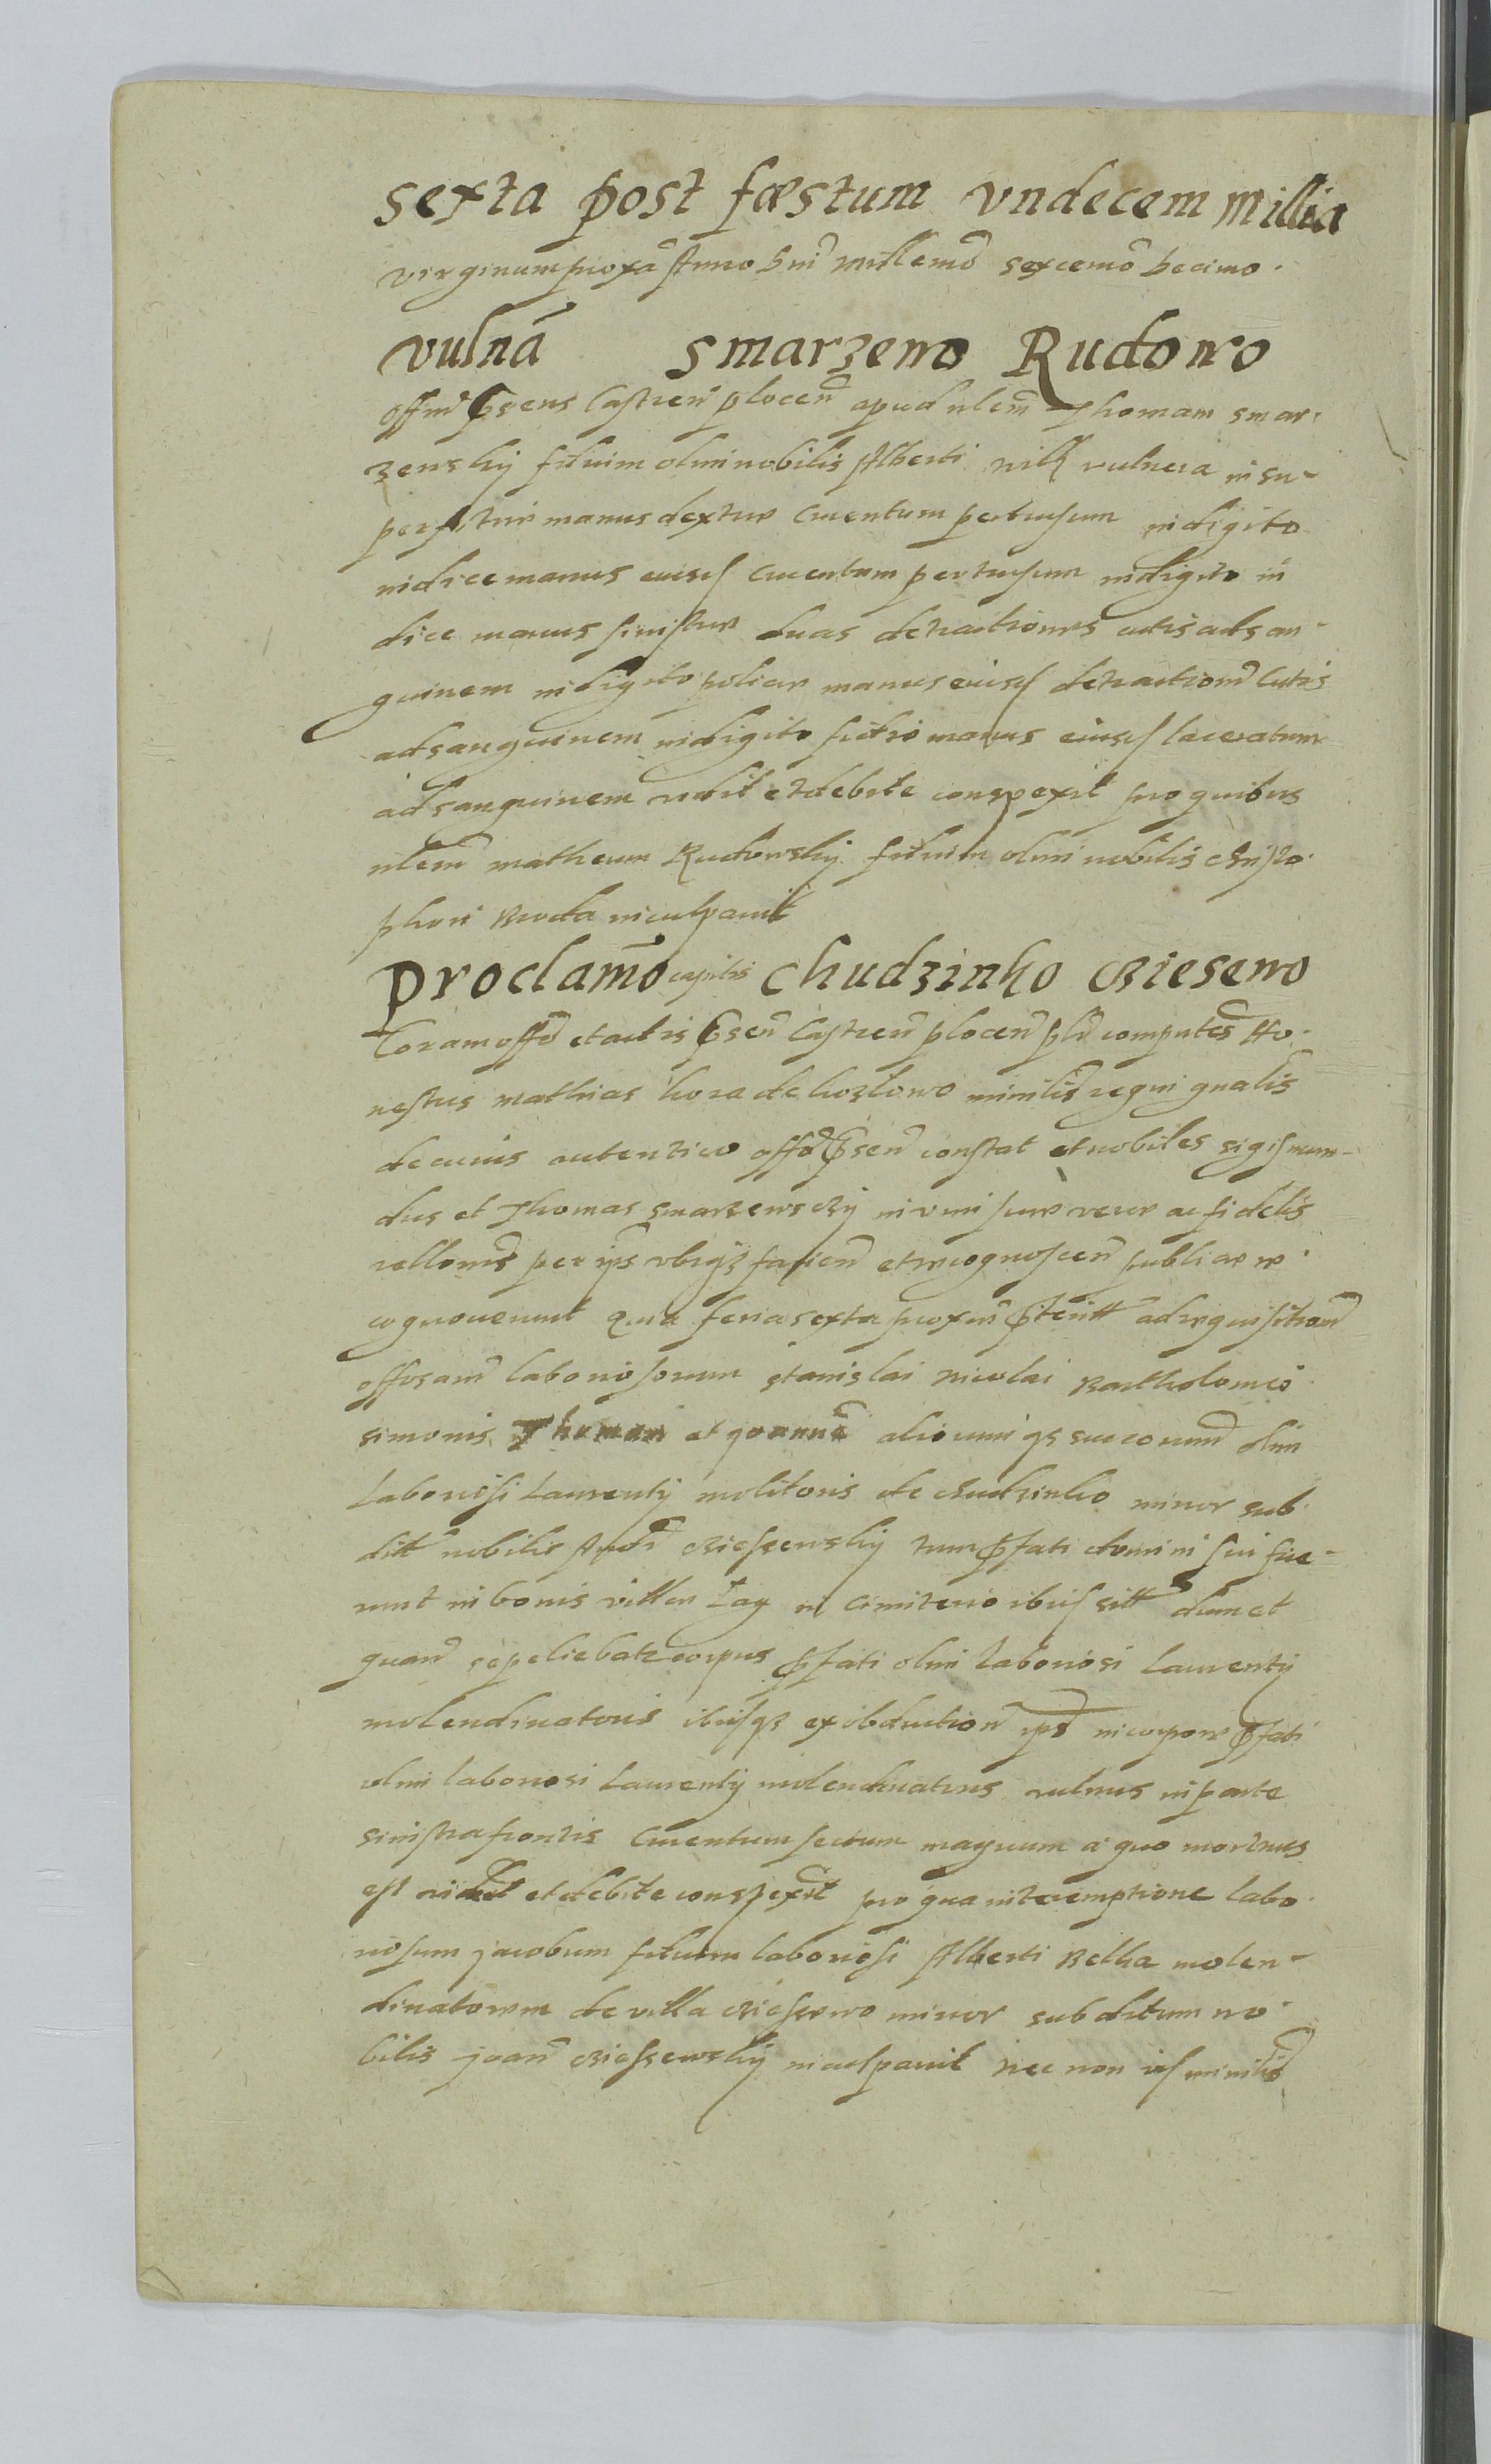 sexta post fæstum vndecem millia
virginum proxã Anno Dnĩ millemõ sexcemõ decimo.
vulnã smarzewo Rudowo
Offm̃ p̃sens Castren̄ plocen̄ apud nlem̃ Thomam smar-
zewskij filium olim nobilis Alberti wilk vulnera in su-
perficie manus dextræ cruentum pertusum in digito
indice manus eiusd cruentum pertusum in digito in
dice manus sinistræ duas detractiones cutis ad san-
guinem in digito polica manus eiusd detractionẽ Cutis
ad sanguinem in digito manus eiusd laceratum
ad sanguinem vidit et debite conspexit pro quibus
nlem̃ matheum Rudowskij filium olim nobilis Christo-
phori Ruda inculpavit
Proclamõ capitis Chudzinko Cziesewo
Coram offõ et actis p̃sen̄ Castren̄ plocen̄ plr̃ computẽs Ho-
nestus mathias kora de kozlowo minilis regni gnalis
de cuius autentico offõ p̃sen̄ constat et nobiles sigismun-
dus et Thomas smarzewsczij in vim suæ veræ ac fidelis
rellonis per ips̃ vbiqz facien̄ et recognoscen̄ publicæ re-
cognoverunt Quia feria sexta proxim̃ p̃teritt ad requisitionẽ
offosam̃ laboriosorum stanislai nicolai Bartholomeo
simonis Thomæ et Joannẽ aliorumqs suorum̃ olim
Laboriosi Laurentij molitoris de Chudzinko minor sub-
ditt nobilis Andr̃ Cziessewskij tum p̃fati domini sui fue-
runt in bonis villæ Łag in cimiterio ibid sitt dum et
quan̄ sepeliebatz corpus p̃fati olim laboriosi Laurentij
molendinatoris ibidqz ex obductionẽ ips̃ in corpore p̃fati
olim laboriosi Laurentij molendinatoris vulnus in parte
sinistra frontis Cruentum sectum magnum a quo mortuus
est vidit et debite conspexit pro qua interemptione labo-
riosum jacobum filium laboriosi Alberti Belka molen-
dinatorem de villa Cziessewo minor subditum no-
bilis joan̄ Cziessewskij inculpavit nec non id minilis